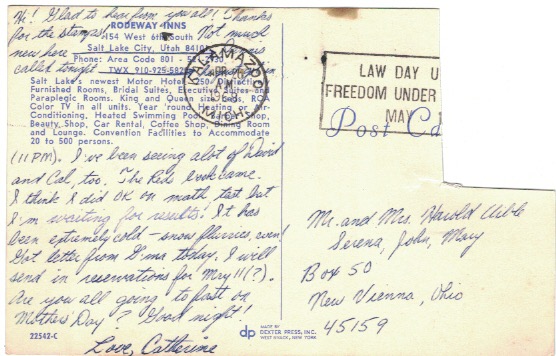 Hi! Glad to hear from you all! Thanks
for the stamps. Not much
new here
called tonight
RODEWAY INNS
154 West 6th South
Salt Lake City, Utah 84101
Phone: Area Code 801 - 521-2930
TWX 910-925-
Salt Lake's newest Motor Hotel. 250 Distinctively
Furnished Rooms, Bridal Suites, Executive Suites and
Paraplegic Rooms. King and Queen size beds, RCA
Color TV in all units. Year round Heating or Air-
Conditioning, Heated Swimming Pool, Barber Shop,
Beauty Shop, Car Rental, Coffee Shop, Dining Room
and Lounge. Convention Facilities to Accommodate
20 to 500 persons.
(11 PM). I've been seeing alot of David
and Cal, too. The Reds book came.
I think I did OK on math test but
I'm waiting for results! It has
been extremely cold - snow flurries, even!
Got letter from G'ma today. I will
send in reservations for May 11(?).
Are you all going to fast on
Mothers' Day? Good night!
Love, Catherine
22542-C
KALAMAZOO
MICH
PM
LAW DAY U
FREEDOM UNDER
MAY
Post Ca
Mr. and Mrs. Harold Uible
Serena, John, Mary
Box 50
New Vienna, Ohio
45159
dp
MADE BY
DEXTER PRESS, INC.
WEST NYACK, NEW YORK